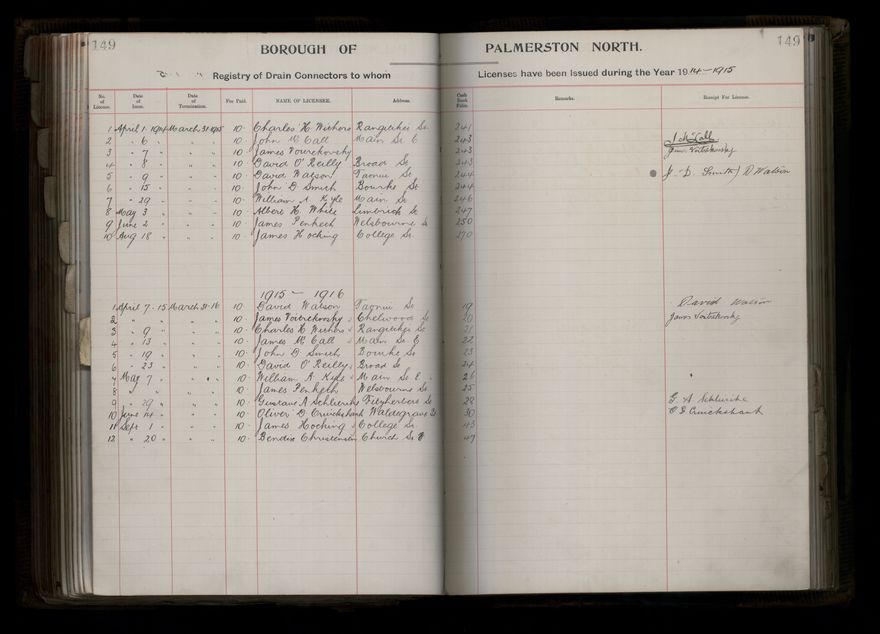 149 BOROUGH OF PALMERSTON NORTH. 149
Registry of Drain Connectors to whom Licenses have been Issued during the Year 1914-1915
No. of License. Date of Issue. Date of Termination. Fee Paid. NAME OF LICENSEE. Address. Cash Book Folio. Remarks. Receipt For License.
1 April 1 1914 March 31 1915 10 - Charles H Withers Rangitikei St 241
2 " 6 " " " 10 - John McCall Main St E 243 J McCall
3 " 7 " " " 10 - James 243 James
4 " 8 " " " 10 - David O'Reilly Broad St 243
5 " 9 " " " 10 - David Watson Taonui St 244 J. D. Smith / D Watson
6 " 15 " " " 10 - John D Smith Bourke St 244
7 " 29 " " " 10 - William A Kyle Main St 246
8 May 3 " " " 10 - Albert H White Limbrick St 247
9 June 2 " " " 10 - James Penketh Welbourne St 250
10 Aug 18 " " " 10 - James Hocking College St 270
1915 - 1916
1 April 7 - 15 March 31-16 10 David Watson Taonui St 19 David Watson
2 " " " " " 10 - James Chelwood St 20 James
3 " 9 " " " 10 - Charles H Withers Rangitikei St 21
4 " 13 " " " 10 - James McCall Main St E 22
5 " 19 " " " 10 - John D Smith Bourke St 23
6 " 23 " " " 10 - David O'Reilly Broad St 24
7 May 7 " " " 10 - William A Kyle Main St E 26
8 " " " " " 10 - James Penketh Welbourne St 25
9 " 29 " " " 10 - Gustave A Fitzherbert St 28 G. A
10 June 14 " " " 10 - Oliver D Cruickshank Waldegrave St 30 O D Cruickshank
11 Sept 1 " " " 10 - James Hocking College St 43
12 " 20 " " " 10 - Bendix Christensen Church St 47